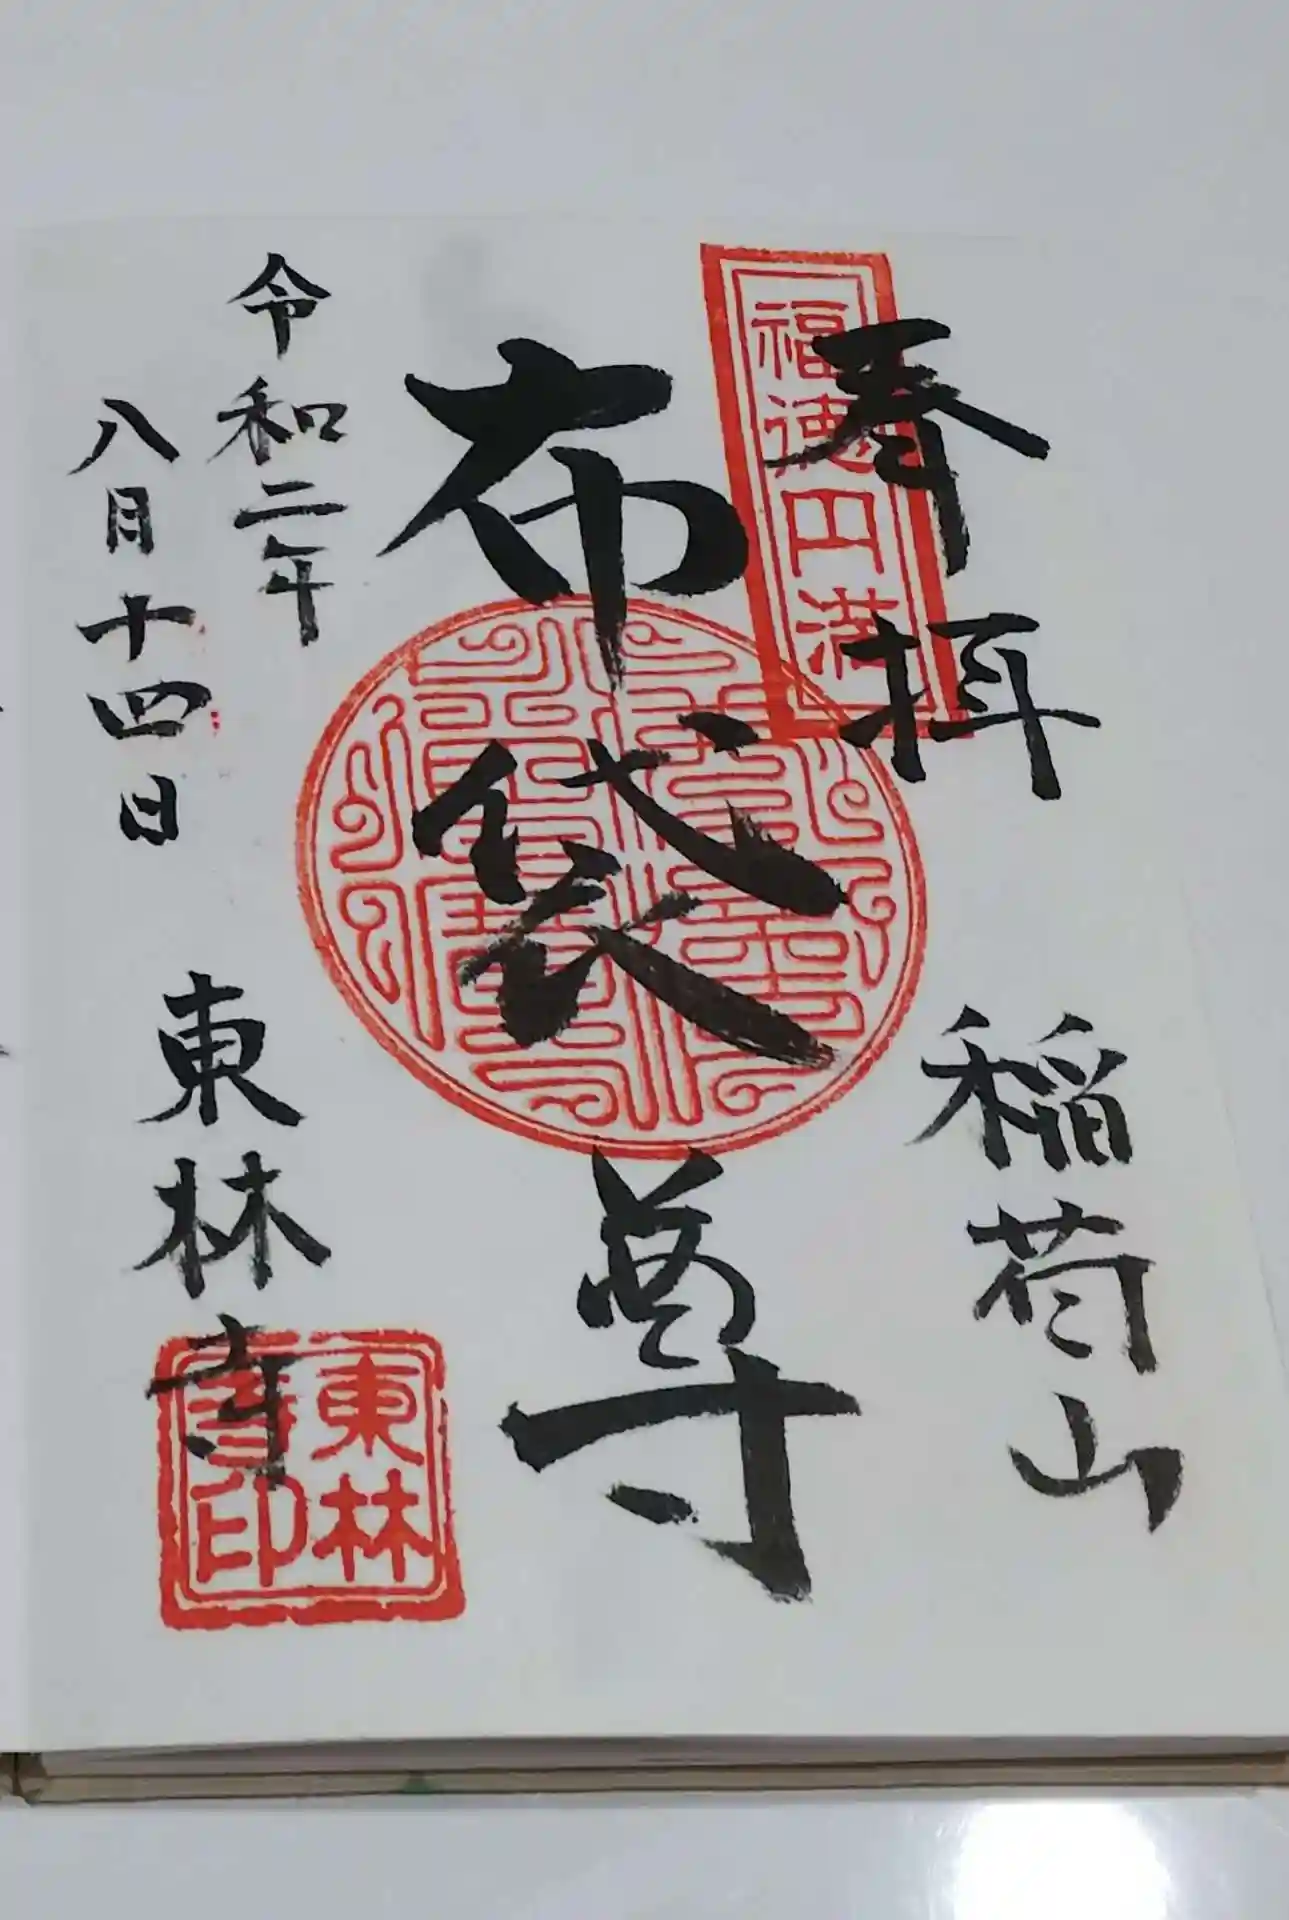 奉拝
稲荷山
福徳円満
布袋尊
令和二年
八月十四日
東林寺
東林
寺印